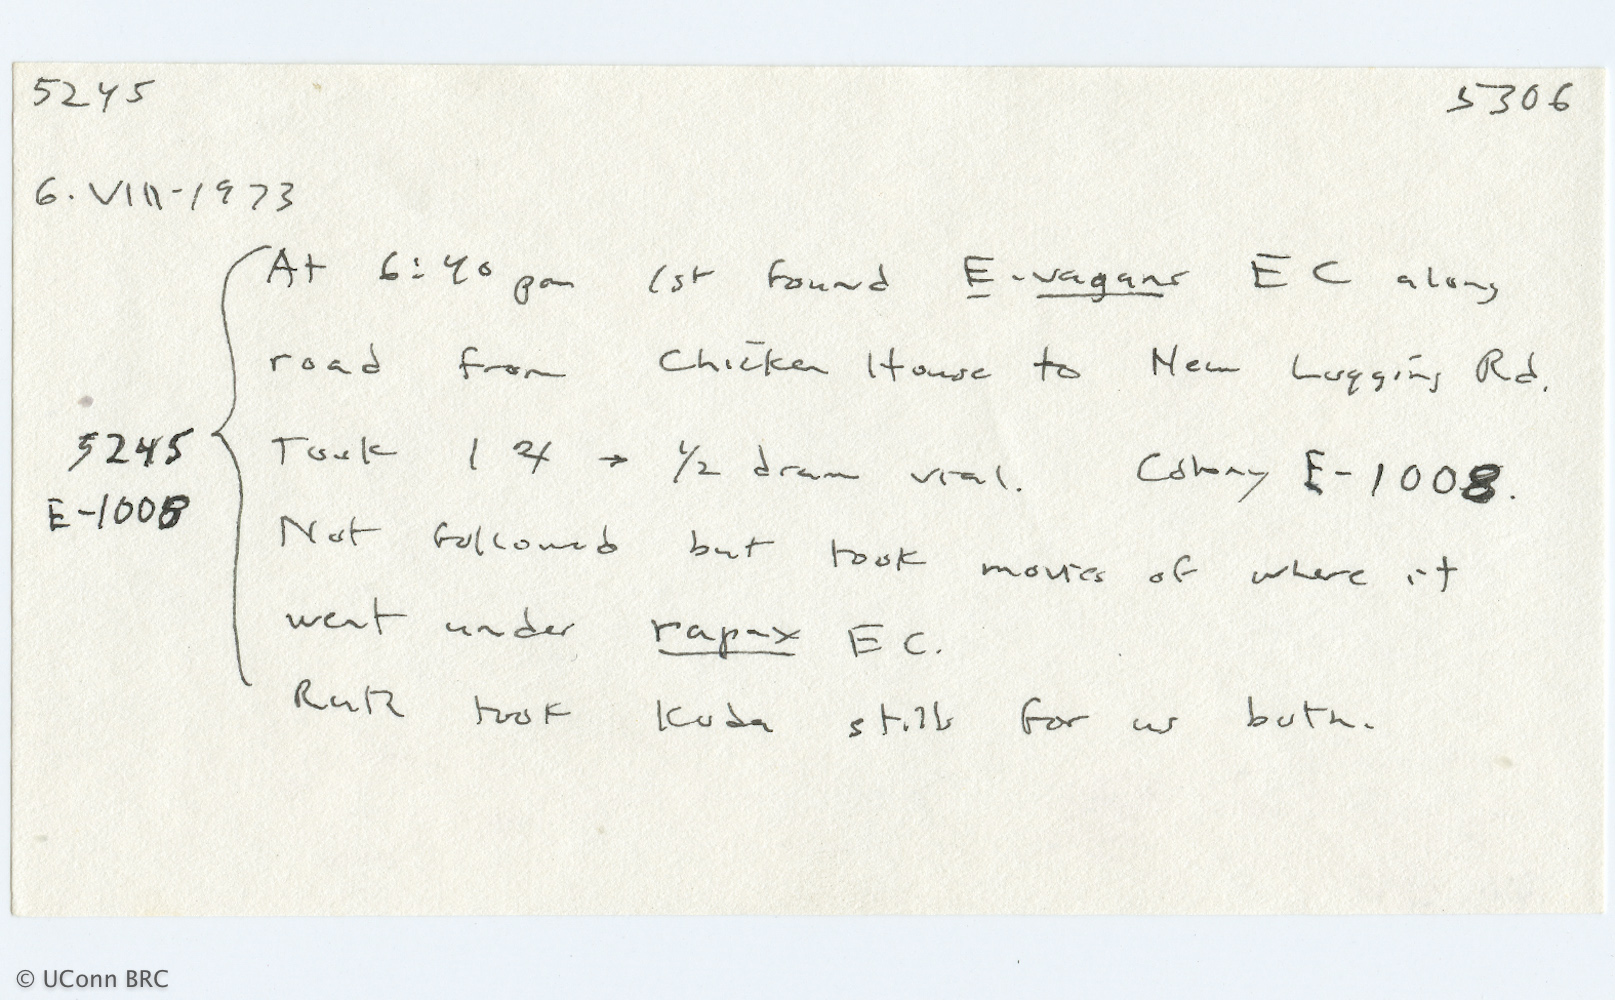 5245 5306
6. VIII-1973
At 6:40 pm 1st found E. vagans EC along
road from Chicken House to New Lugging Rd.
5245 Took 1 ♃ → 1/2 dram vial. Colony E-1008.
E-1008
Not followed but took movies of where it
went under rapax EC.
Ruth took Koda stills for us both.
© UConn BRC